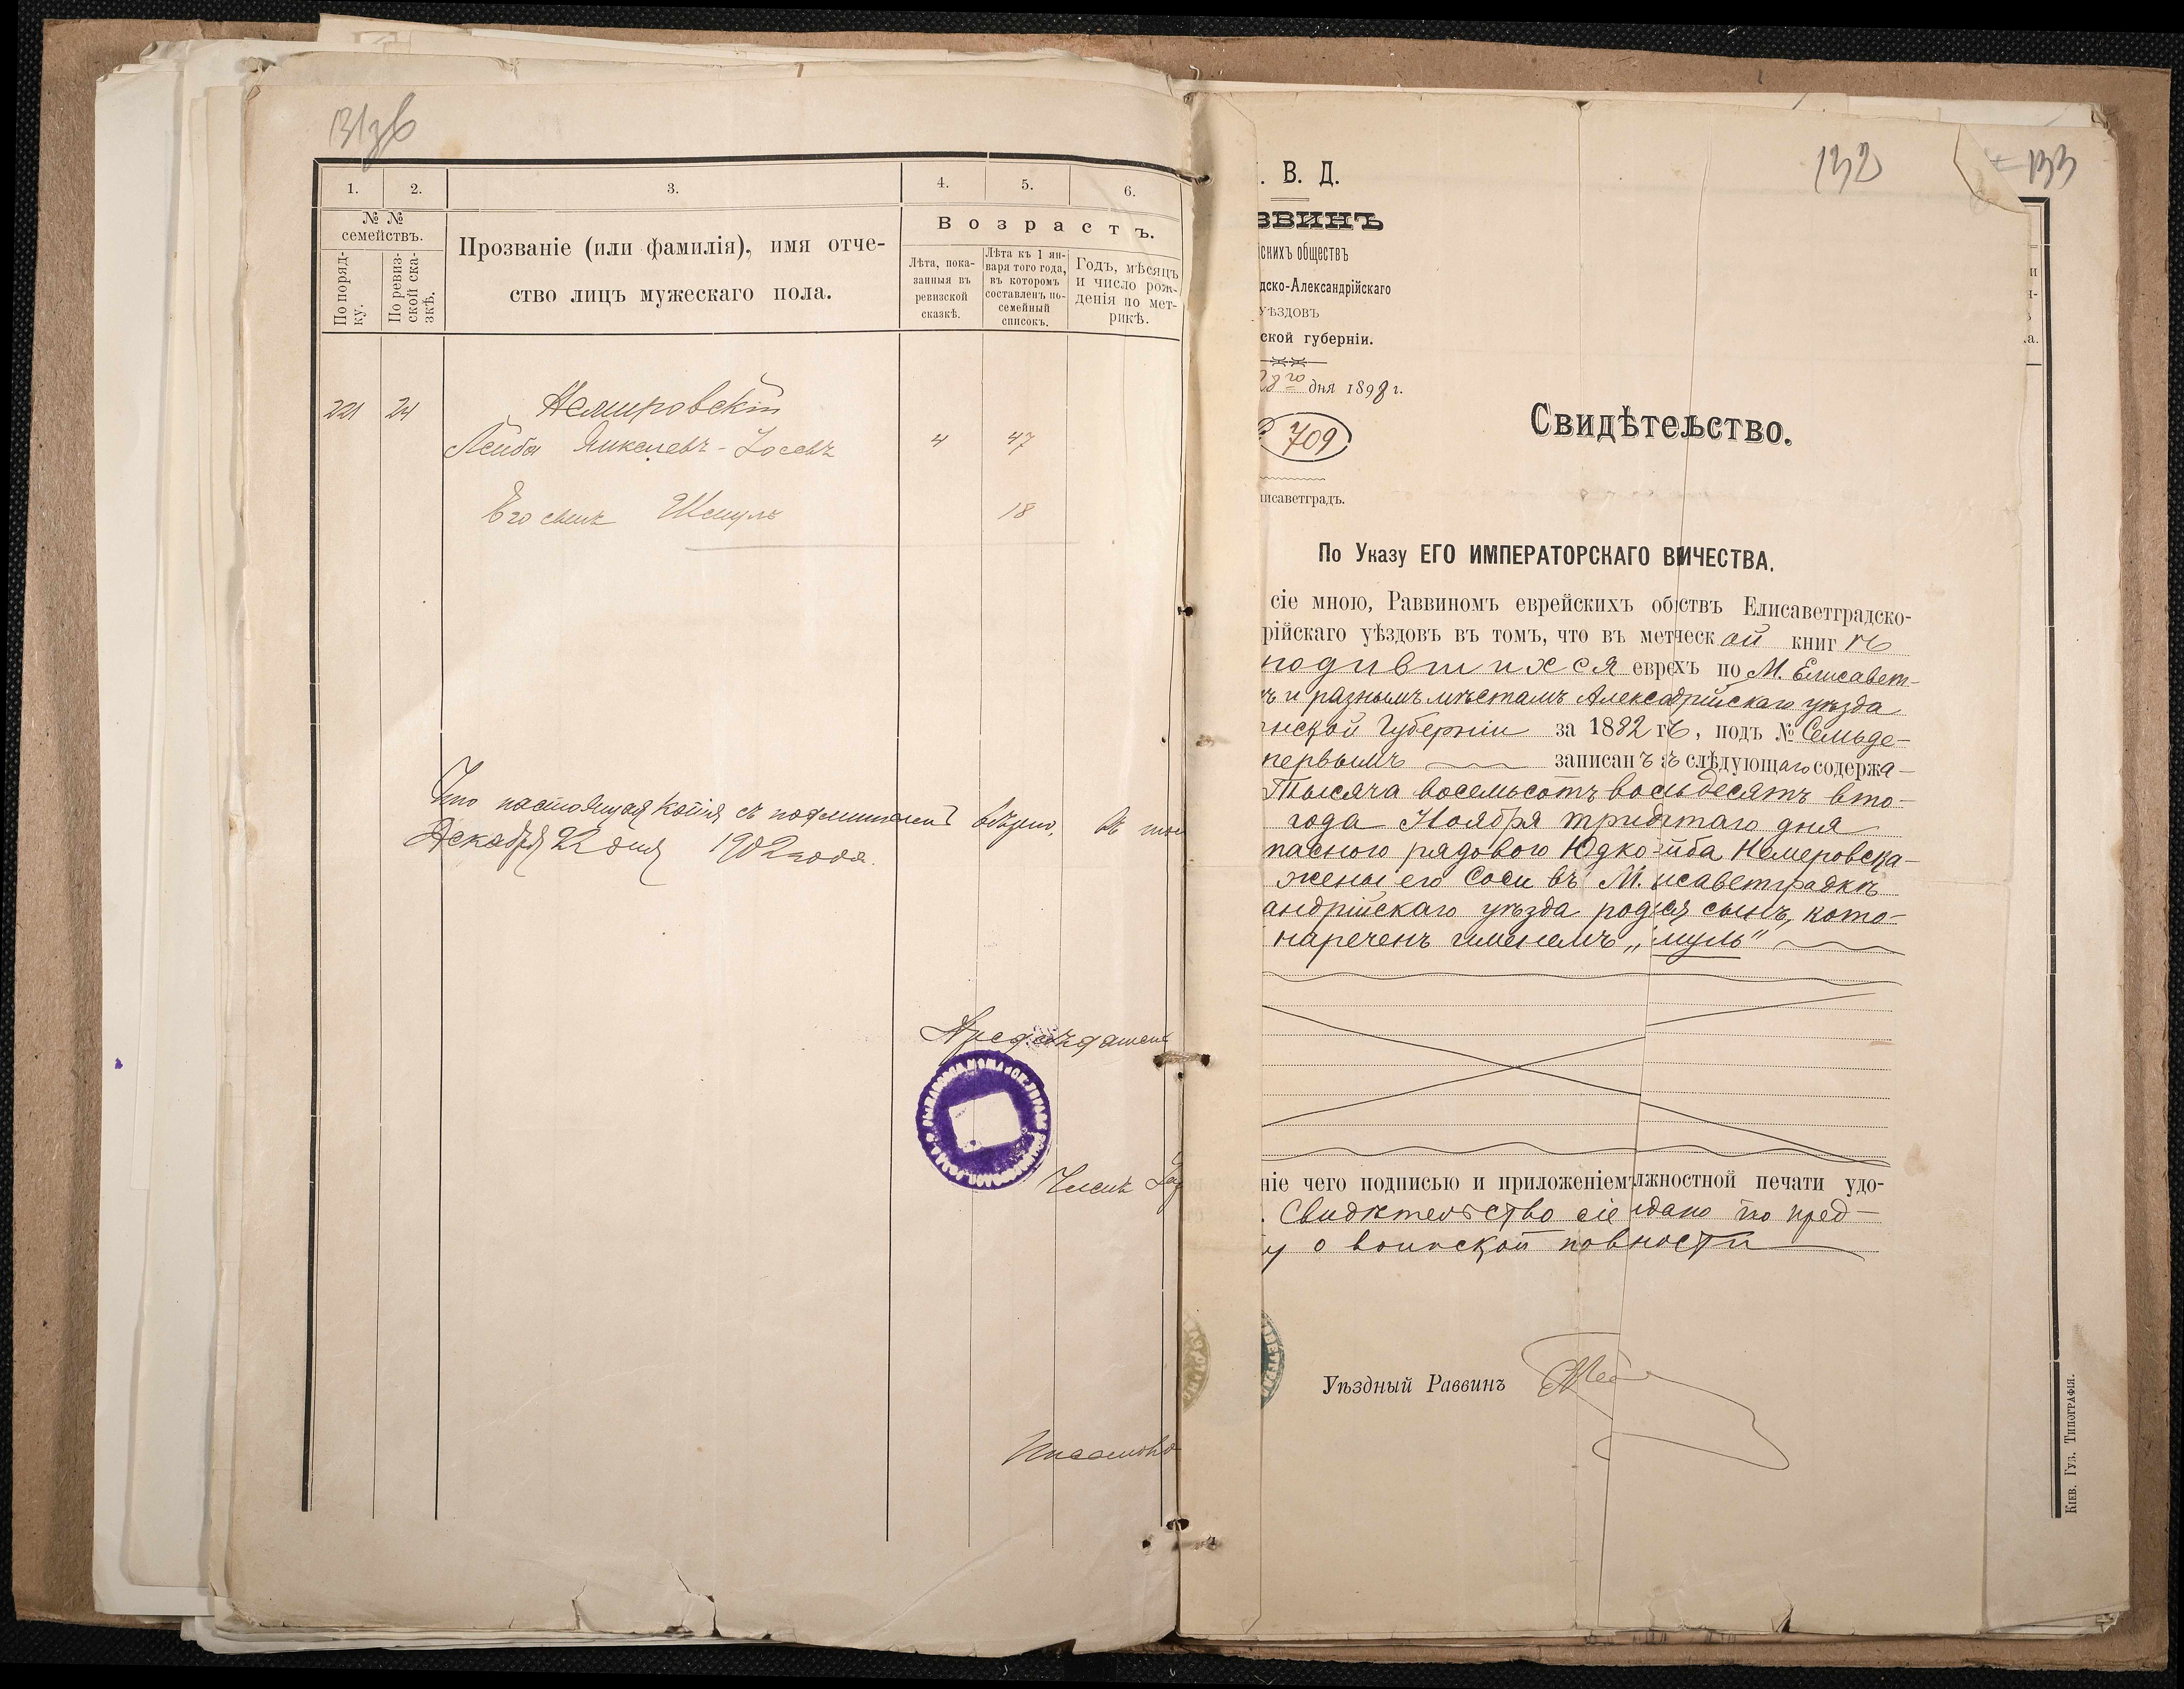 131зв
1. 2. 3. 4. 5. 6.
№ №
семействъ.
По поряд-
ку.
По ревиз-
ской ска-
зкѣ.
Прозваніе (или фамилія), имя отче-
ство лицъ мужескаго пола.
Возрастъ.
Лѣта, пока-
занныя въ
ревизской
сказкѣ.
Лѣта къ 1 ян-
варя того года,
въ которомъ
составленъ по-
семейный
списокъ.
Годъ, мѣсяцъ
и число рож-
денія по мет-
рикѣ.
221 24 Немировскій
Лейба Янкелевъ-Іосевъ 4 47
Его сынъ Шмуль 18
Что настоящая копія съ подлинной вѣрно, въ том
Декабря 22 дня 1902 года.
Предсѣдатель
Членъ
132
133
. В. Д.
ВВИНЪ
скихъ обществъ
дско-Александрійскаго
уѣздовъ
ской губерніи.
28го дня 1898 г.
709
лисаветградъ.
Свидѣтельство.
По Указу ЕГО ИМПЕРАТОРСКАГО ВИЧЕСТВА.
сіе мною, Раввиномъ еврейскихъ обствъ Елисаветградско-
рійскаго уѣздовъ въ томъ, что въ метческой книгѣ
родившихся еврехъ по М. Елисавет-
ъ и разнымъ мѣстамъ Алексадрійскаго уѣзда
нской Губерніи за 1882 гѣ, подъ № Семьде-
первымъ записанъ ъ слѣдующаго содержа-
Тысяча восемьсотъ восьдесятъ вто-
года Ноября тридтаго дня
паснаго рядового Юдко-йба Немеровска-
жены его Соси въ М. исаветградкѣ
андрійскаго уѣзда родся сынъ, кото-
нареченъ именемъ „муль"
ніе чего подписью и приложеніемъ лжностной печати удо-
. Свидѣтельство сіе дано по пред-
у о воинской повности
Уѣздный Раввинъ
Кіев. Губ. Типографія.